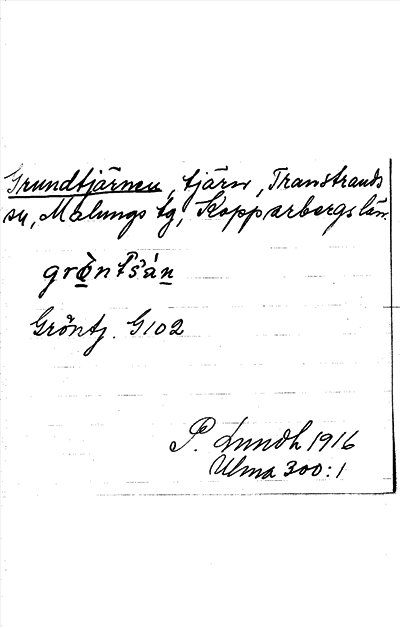 Grundtjärnen, tjärn, Transtrands
sn, Malungs tg, Kopparbergs län.
gröntšán
Gröntj. G102
P. Lundh 1916
Ulma 300:1